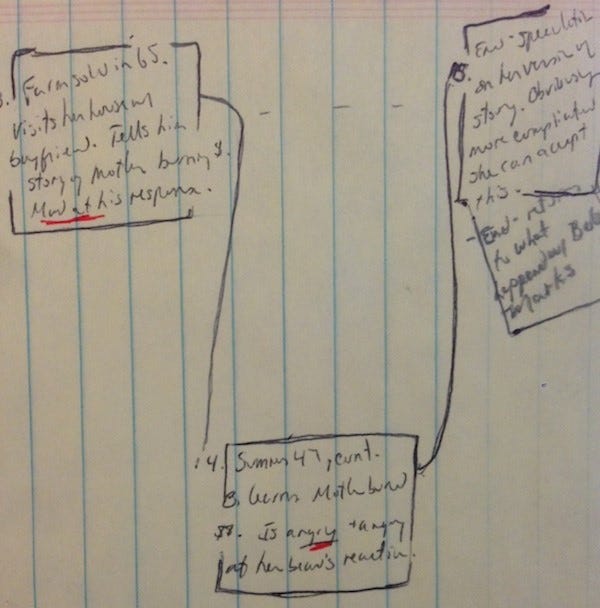 3. Farm sold in 65.
Visits her house w/
boyfriend. Tells him
story of Mother burning $.
Mad at his response.
4. Summer 47, cont.
B. learns Mother burned
$$. Is angry + angry
at her beau's reaction.
5. End - speculation
on her version of
story. Obviously
more complicated
she can accept
this -
- End - returns
to what
happened